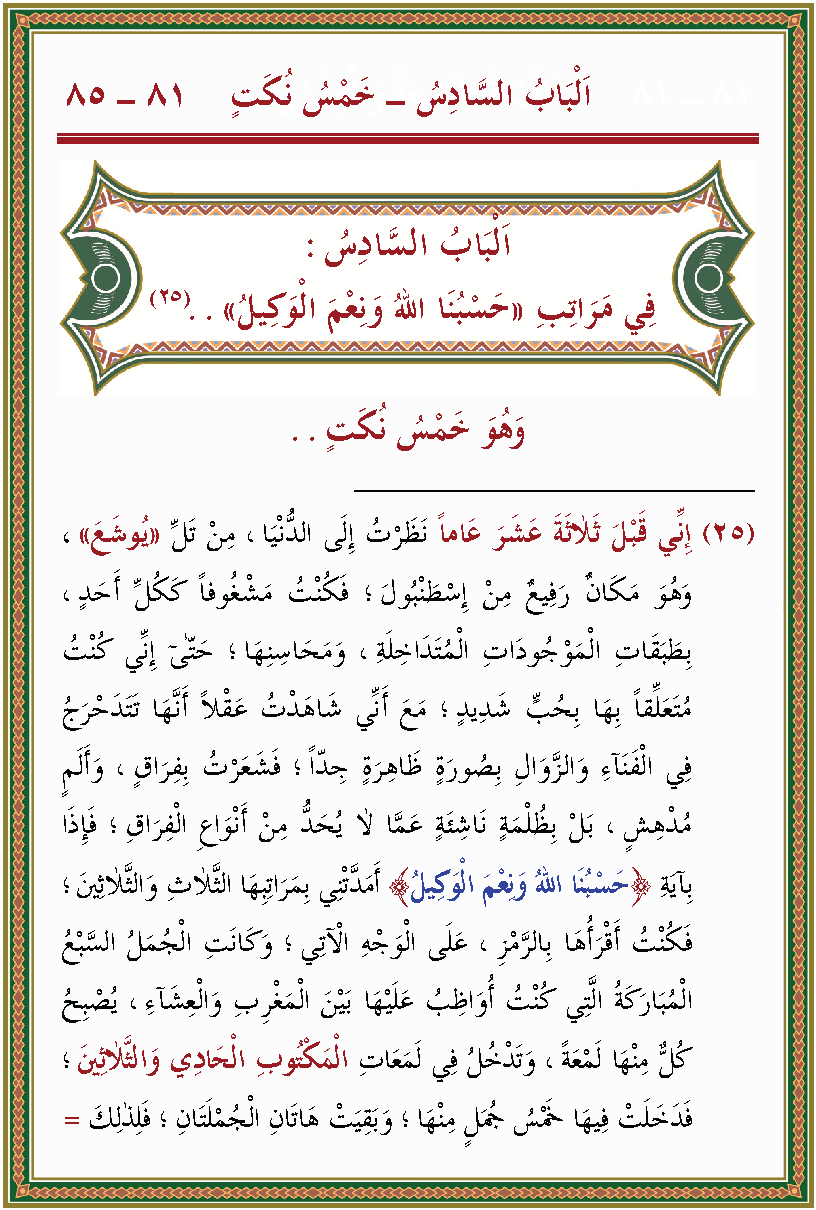 اَلْبَابُ السَّادِسُ – خَمْسُ نُكَتٍ ٨١ – ٨٥
اَلْبَابُ السَّادِسُ :
فِي مَرَاتِبِ «حَسْبُنَا اللهُ وَنِعْمَ الْوَكِيلُ» . .(٢٥)
وَهُوَ خَمْسُ نُكَتٍ . .
(٢٥) إِنِّي قَبْلَ ثَلٰاثَةَ عَشَرَ عَاماً نَظَرْتُ إِلَى الدُّنْيَا ، مِنْ تَلِّ «يُوشَعَ» ،
وَهُوَ مَكَانٌ رَفِيعٌ مِنْ إِسْطَنْبُولَ ؛ فَكُنْتُ مَشْغُوفاً كَكُلِّ أَحَدٍ ،
بِطَبَقَاتِ الْمَوْجُودَاتِ الْمُتَدَاخِلَةِ ، وَمَحَاسِنِهَا ؛ حَتّٰىٓ إِنِّي كُنْتُ
مُتَعَلِّقاً بِهَا بِحُبٍّ شَدِيدٍ ؛ مَعَ أَنِّي شَاهَدْتُ عَقْلاً أَنَّهَا تَتَدَحْرَجُ
فِي الْفَنَآءِ وَالزَّوَالِ بِصُورَةٍ ظَاهِرَةٍ جِدّاً ؛ فَشَعَرْتُ بِفِرَاقٍ ، وَأَلَمٍ
مُدْهِشٍ ، بَلْ بِظُلْمَةٍ نَاشِئَةٍ عَمَّا لٰا يُحَدُّ مِنْ أَنْوَاعِ الْفِرَاقِ ؛ فَإِذَا
بِآيَةِ ﴿حَسْبُنَا اللهُ وَنِعْمَ الْوَكِيلُ﴾ أَمَدَّتْنِي بِمَرَاتِبِهَا الثَّلٰاثِ وَالثَّلٰاثِينَ ؛
فَكُنْتُ أَقْرَأُهَا بِالرَّمْزِ ، عَلَى الْوَجْهِ الْآتِي ؛ وَكَانَتِ الْجُمَلُ السَّبْعُ
الْمُبَارَكَةُ الَّتِي كُنْتُ أُوَاظِبُ عَلَيْهَا بَيْنَ الْمَغْرِبِ وَالْعِشَآءِ ، يُصْبِحُ
كُلٌّ مِنْهَا لَمْعَةً ، وَتَدْخُلُ فِي لَمَعَاتِ الْمَكْتُوبِ الْحَادِي وَالثَّلٰاثِينَ ؛
فَدَخَلَتْ فِيهَا خَمْسُ جُمَلٍ مِنْهَا ؛ وَبَقِيَتْ هَاتَانِ الْجُمْلَتَانِ ؛ فَلِذٰلِكَ =